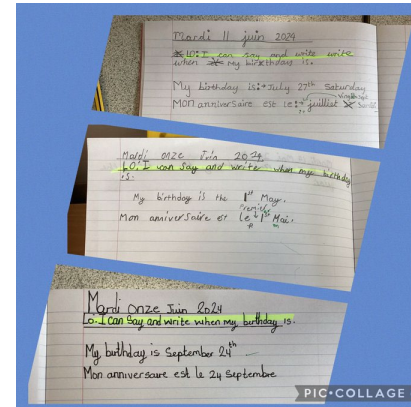 Mardi 11 juin 2024
LO: I can say and write write
when my birthday is.
My birthday is:→ July 27th Saturday
Mon anniversaire est le:→ juilliet
Mardi onze Juin 2024
LO: I can say and write when my birthday
is.
My birthday is the 1st May.
Mon anniversaire est le 1st Mai.
Mardi onze Juin 2024
Lo: I can Say and write when my birthday is.
My birthday is September 24th
Mon anniversaire est le 24 septembre
PIC•COLLAGE